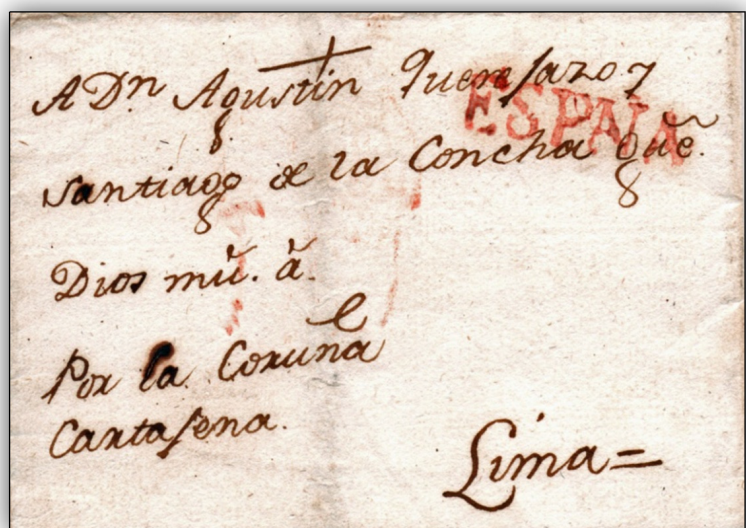 A Dn Agustin Querejazo y
ESPAÑA
Santiago de la Concha que
Dios mũ. ă.
Por la Coruña
Cartajena.
Lima=